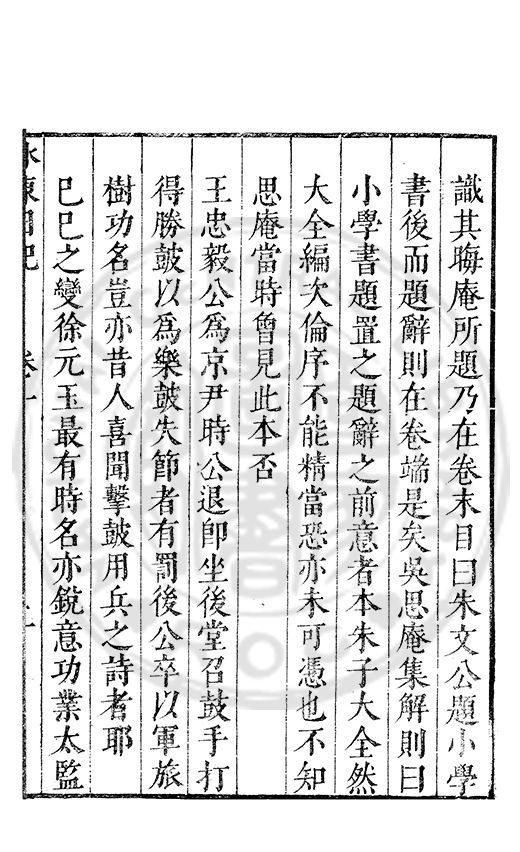 識其晦庵所題乃在卷末目曰朱文公題小學
書後而題辭則在卷端是矣吳思庵集解則曰
小學書題置之題辭之前意者本朱子大全然
大全編次倫序不能精當恐亦未可憑也不知
思庵當時曾見此本否
王忠毅公爲京尹時公退卽坐後堂召鼓手打
得勝鼓以爲樂鼓失節者有罰後公卒以軍旅
樹功名豈亦昔人喜聞擊鼓用兵之詩者耶
巳巳之變徐元玉最有時名亦銳意功業太監
水東日記 卷十